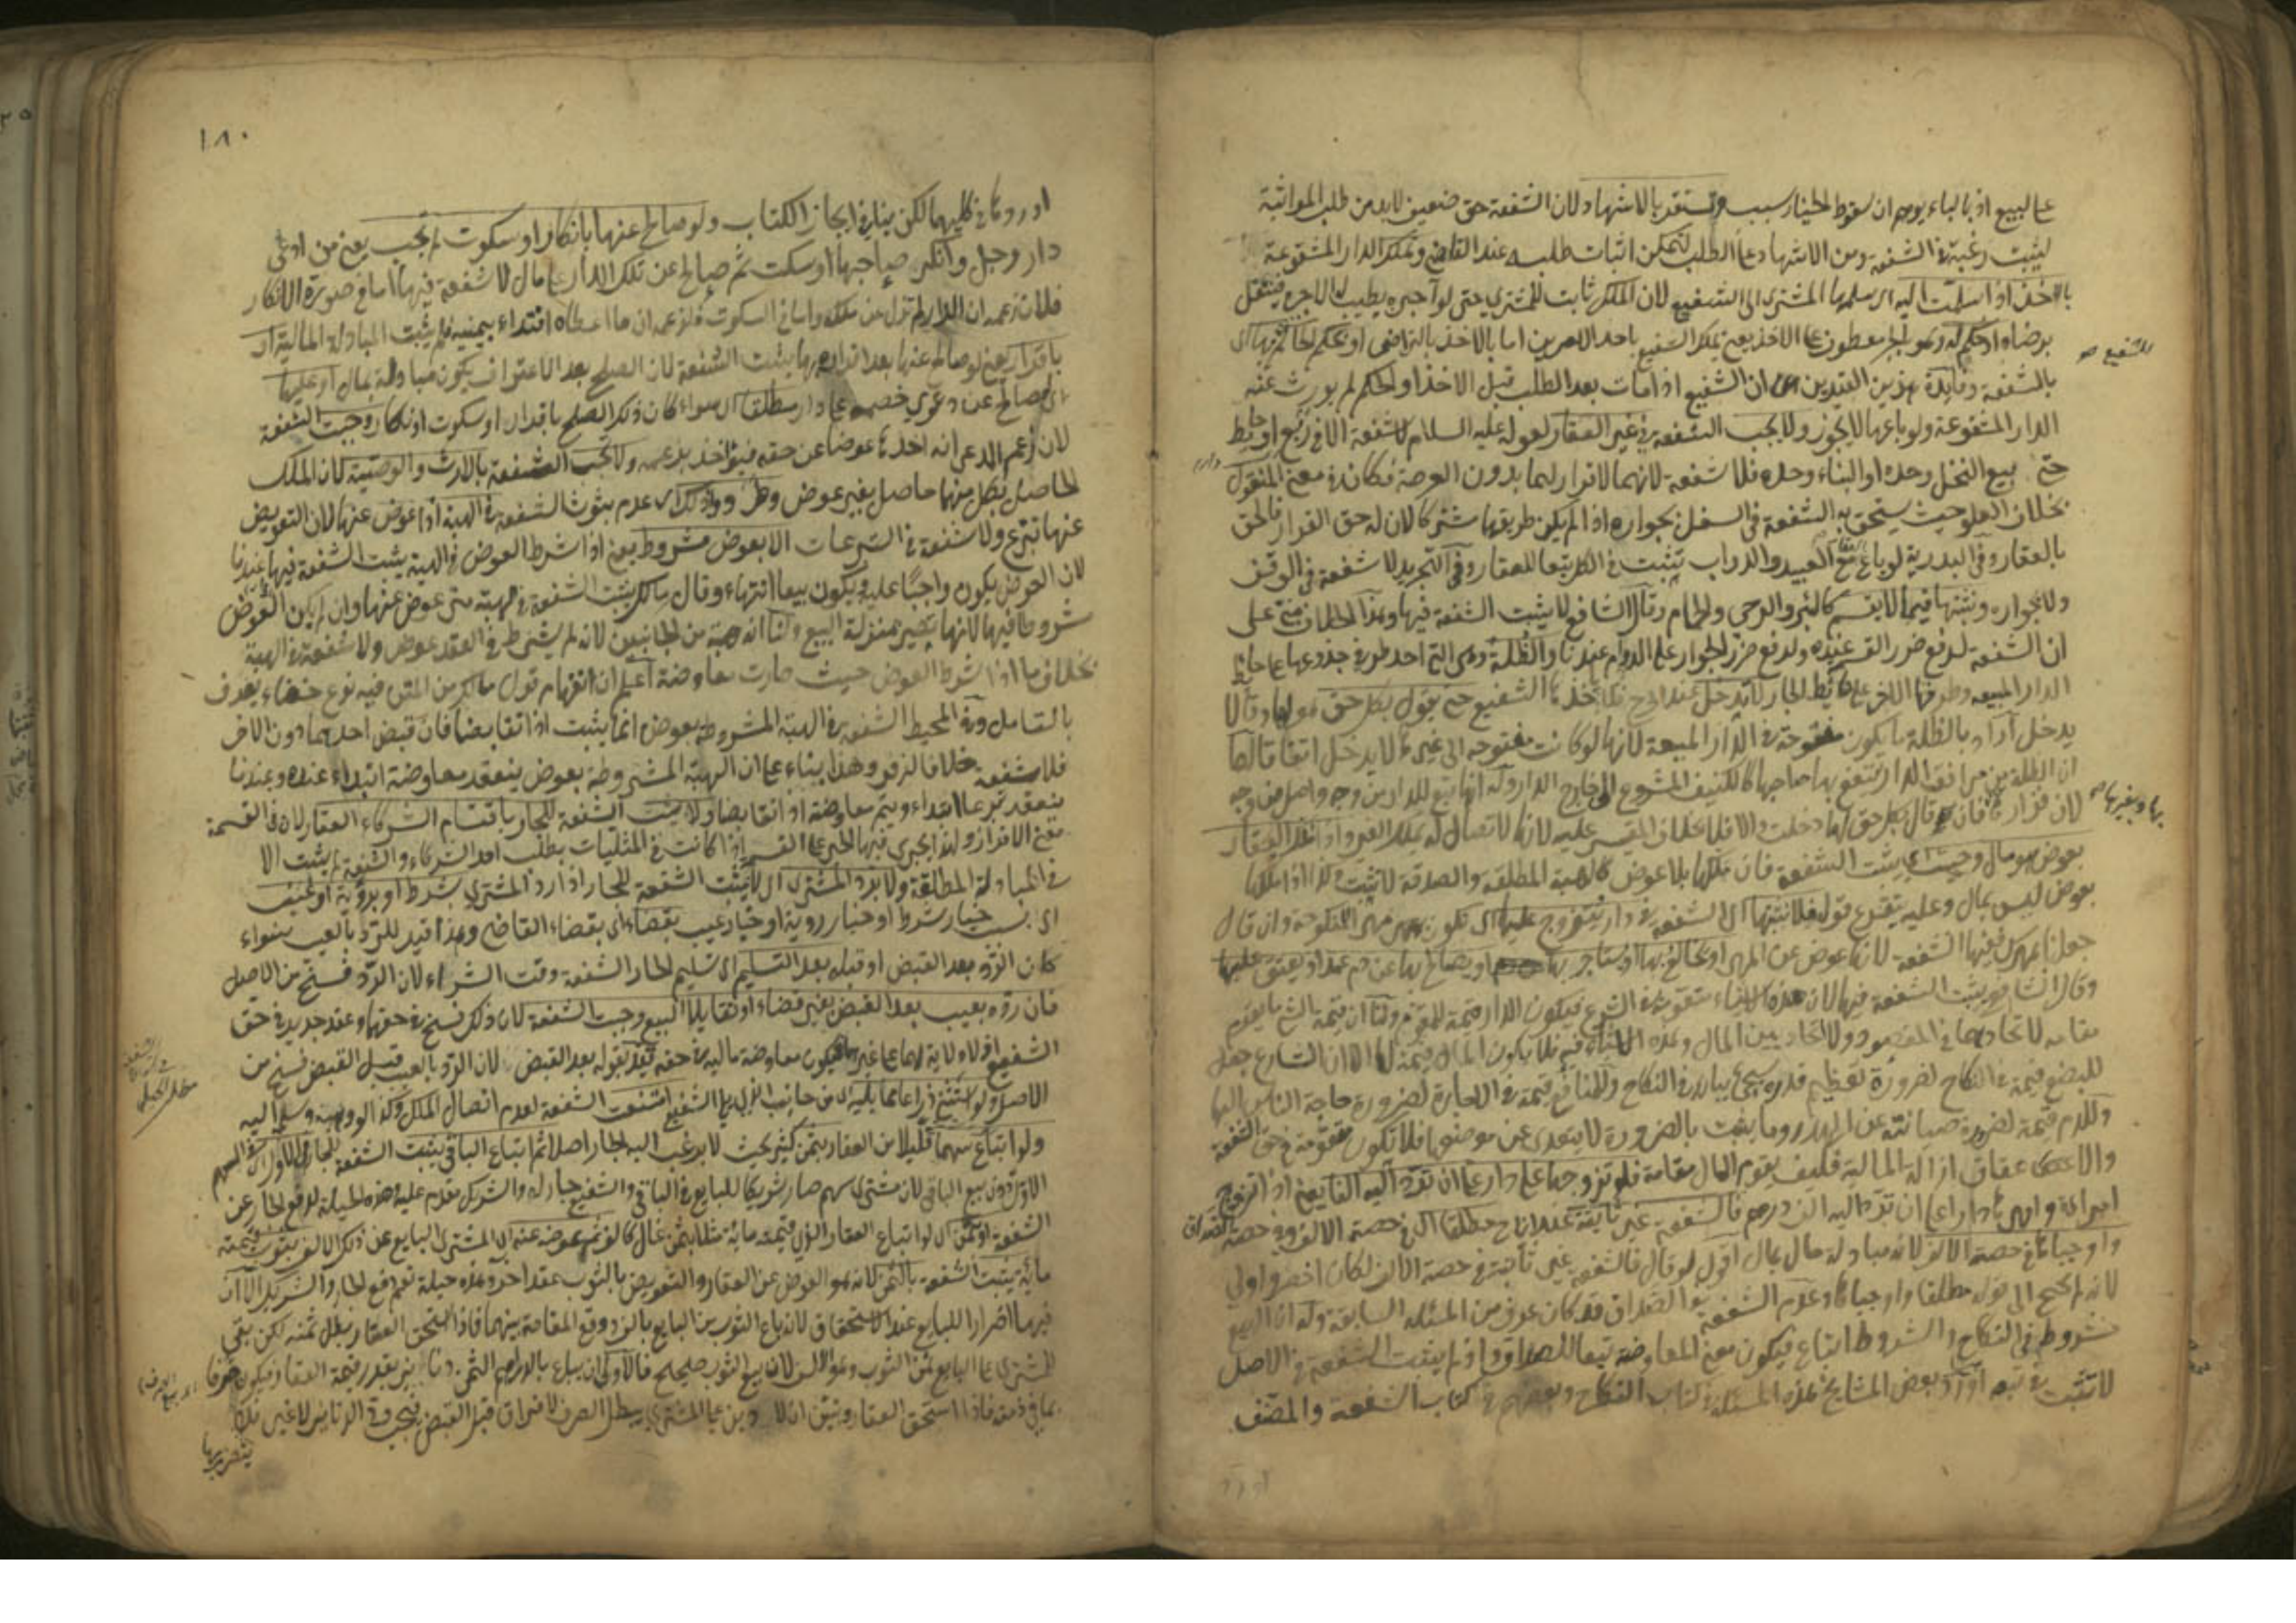 على البيع اذ بالباء يوهم ان سقوط الخيار سبب وتستقر بالاشهاد لان الشفعة حق ضعيف لابد من طلب المواثبة
ليثبت رغبة في الشفعة ومن الاشهاد على الطلب ليمكن اثبات طلبه عند القاضي وتملك الدار المشفوعة
بالاخذ اذا سلمت اليه اى سلمها المشترى الى الشفيع لان الملك ثابت للمشترى حتى لو آجره يطيب له الاجرة فينتقل
برضاه او حكم له وهو بالجر معطوف على الاخذ يعنى يملك الشفيع باحد الامرين اما بالاخذ بالتراضى او بحكم الحاكم
للشفيع صح
بالشفعة وفائدة هذين القيدين ان الشفيع اذا مات بعد الطلب قبل الاخذ او الحكم لم يورث عنه
الدار المشفوعة ولو باعها لا يجوز ولا يجب الشفعة في غير العقار لقوله عليه السلام لا شفعة الا في ربع او حائط
حتى بيع النخل وحده او البناء وحده فلا شفعة لانهما لا قرار لهما بدون العرصة فكانا في معنى المنقول
بخلاف العلو حيث يستحق به الشفعة في السفل بجواره اذا لم يكن طريقها مشتركا لان له حق القرار فالحق
بالعقار وفي البدرية لو باع مع العبيد والدواب تثبت في الكل تبعا للعقار وفي التجريد لا شفعة في الوقف
ولا بجواره ونثبتها فيما لا يقسم كالبئر والرحى والحمام وقال الشافعى لا يثبت الشفعة فيها وهذا الخلاف مبنى على
ان الشفعة لدفع ضرر القسمة عنده ولدفع ضرر الجوار على الدوام عندنا والظلة وهى التى احد طرفى جذوعها على حائط
الدار المبيعة وطرفها الاخر على حائط الجار لا تدخل عند ابى ح فلا تأخذ بها الشفيع حتى يقول بكل حق هو لها وقالا
يدخل اراد بالظلة ما يكون مفتوحة في الدار المبيعة لانها لو كانت مفتوحة الى غيرها لا يدخل اتفاقا لهما
ان الظلة من مرافق الدار ينتفع بها صاحبها كالكنيف المشروع الى خارج الدار وله انها تبع للدار من وجه واصل من وجه
بها وبغيرها صح
بعوض هو مال وجبت اى يثبت الشفعة فان ملكها بلا عوض كالهبة المطلقة والصدقة لا يثبت وكذا اذا ملكها
بعوض ليس بمال وعليه يتفرع قوله فلا نثبتها اى الشفعة في دار يتزوج عليها اى تكون مهر المنكوحة وان قال
جعلتها مهرك ففيها الشفعة لانها عوض عن المهر او يخالع بها او يستأجر بها او يصالح بها عن دم عمد او يعتق عليها
وقال الشافعى يثبت الشفعة فيها لان هذه الاشياء متقومة في الشرع فيكون الدار قيمة للمتقوم ولنا ان قيمة الشئ ما يقوم
مقامه لاتحادهما في المقصود ولا اتحاد بين المال وهذه الاشياء فلا يكون المال قيمة لها الا ان الشارع جعل
للبضع قيمة في النكاح لضرورة تعظيم قدره وللمنافع قيمة في الاجارة لضرورة حاجة الناس اليها
وللدم قيمة لضرورة صيانته عن الهدر وما يثبت بالضرورة لا يتعدى عن موضعها فلا تكون متقومة في حق الشفعة
والاعتاق ازالة المالية فكيف يقوم المال مقامه فلو تزوجها على دار على ان ترد اليه الفا يعنى اذا تزوج
امرأة وامهرها دارا على ان ترد اليه الف درهم فالشفعة غير ثابتة عند ابى ح مطلقا اى في حصة الالف وفى حصة الصداق
واوجباها في حصة الالف لانه مبادلة مال بمال اقول لو قال فالشفعة غير ثابتة في حصة الالف لكان اخصر واولى
لانه لم يحتج الى قوله مطلقا واوجباها وعدم الشفعة في الصداق قد كان عرف من المسئلة السابقة وله ان البيع
مشروط في النكاح والشروط اتباع فيكون معنى المعاوضة تبعا للصداق واذا لم يثبت الشفعة في الاصل
لا تثبت في تبعه اورد بعض المشايخ هذه المسئلة في كتاب النكاح وبعضهم في كتاب الشفعة والمصنف
١٨٠
اورده ما في كليهما لكن ينافى ايجاز الكتاب ولو صالح عنها بانكار او سكوت لم تجب يعنى من ادعى
دار رجل وانكر صاحبها او سكت ثم صالح عن تلك الدار على مال لا شفعة فيها اما في صورة الانكار
فلان زعمه ان الدار لم تزل عن ملكه واما في السكوت فلزعمه ان ما اعطاه افتداء بيمينه فلم يثبت المبادلة المالية او
باقرار يعنى لو صالح عنها بعد اقراره بها يثبت الشفعة لان الصلح بعد الاعتراف يكون مبادلة بمال او عليها
اى لو صالح عن دعوى خصمه على دار مطلقا اى سواء كان ذلك الصلح باقرار او سكوت او انكار وجبت الشفعة
لان زعم المدعى انه اخذها عوضا عن حقه فيؤاخذ بزعمه ولا تجب الشفعة بالارث والوصية لان الملك
الحاصل بكل منها حاصل بغير عوض عدم ثبوت الشفعة في الهبة اذا عوض عنها لان التعويض
عنها تبرع ولا شفعة في التبرعات الا بعوض مشروط يعنى اذا شرط العوض في الهبة يثبت الشفعة فيها عندنا
لان العوض يكون واجبا عليه ويكون بيعا انتهاء وقال مالك يثبت الشفعة في هبة متى عوض عنها وان لم يكن العوض
مشروطا فيها لانها تصير بمنزلة البيع ولنا انه هبة من الجانبين لانه لم يشترط في العقد عوض ولا شفعة في الهبة
بخلاف ما اذا شرط العوض حيث صارت معاوضة اعلم ان انفهام قول مالك من المتن فيه نوع خفاء يعرف
بالتأمل وفى المحيط الشفعة في الهبة المشروطة بعوض انما يثبت اذا تقابضا فان قبض احدهما دون الاخر
فلا شفعة خلافا لزفر وهذا بناء على ان الهبة المشروطة بعوض ينعقد معاوضة ابتداء عنده وعندنا
ينعقد تبرعا ابتداء ويتم معاوضة اذا تقابضا ولا يثبت الشفعة للجار باقتسام الشركاء العقار لان في القسمة
معنى الافراز ولهذا يجرى فيها الجبر على القسم اذا كانت في المثليات بطلب احد الشركاء والشفعة لم يثبت الا
في المبادلة المطلقة ولا برد المشترى اى لا يثبت الشفعة للجار اذا رد المشترى بشرط او برؤية او بعيب
اى بسبب خيار شرط او خيار رؤية او خيار عيب بقضاء اى بقضاء القاضى وهذا قيد للرد بالعيب سواء
كان الرد بعد القبض او قبله بعد التسليم اى تسليم الجار الشفعة وقت الشراء لان الرد فسخ من الاصل
فان رده بعيب بعد القبض بغير قضاء او تقايلا البيع وجبت الشفعة لان ذلك فسخ في حقهما وعقد جديد في حق
الشفيع اذ لا ولاية لهما على غيرهما فيكون معاوضة مالية في حقه قيد بقوله بعد القبض لان الرد بالعيب قبل القبض فسخ من
الاصل ولو استثنى ذراعا مما يليه اى من جانب الذى يلى الشفيع امتنعت الشفعة لعدم اتصال الملك وكذا لو وهبه وسلم اليه
مطلب الحيلة
ولو ابتاع سهما قليلا من العقار بثمن كثير بحيث لا يرغب اليه الجار اصلا ثم ابتاع الباقى يثبت الشفعة للجار في الاول اى في السهم
الاول دون بيع الباقى لان مشترى سهم صار شريكا للبايع في الباقى والشفيع جار له والشريك مقدم عليه هذه الحيلة لدفع الجار عن
الشفعة او بثمن اى لو ابتاع العقار الذى قيمته مائة مثلا بثمن غال كالف ثم عوضه عنه اى المشترى البايع عن ذلك الالف بثوب قيمته
مائة يثبت الشفعة بالثمن لانه هو العوض عن العقار والتعويض بالثوب عقد اخر وهذه حيلة تعم دفع الجار والشريك الا ان
فيها اضرارا للبايع عند الاستحقاق لانه باع الثوب من البايع بالف ووقع المقاصة بينهما فاذا استحق العقار بطل ثمنه لكن بقى
للمشترى على البايع ثمن الثوب وهو الالف لان بيع الثوب صحيح فالاولى ان يباع بالدراهم الثمن دنانير بقدر قيمة العقار فيكون صرفا
بما في ذمته فاذا استحق العقار وتبين ان لا دين على المشترى يبطل الصرف للافتراق قبل القبض فيجب رد الدنانير لا غير فلا
يتضرر بها